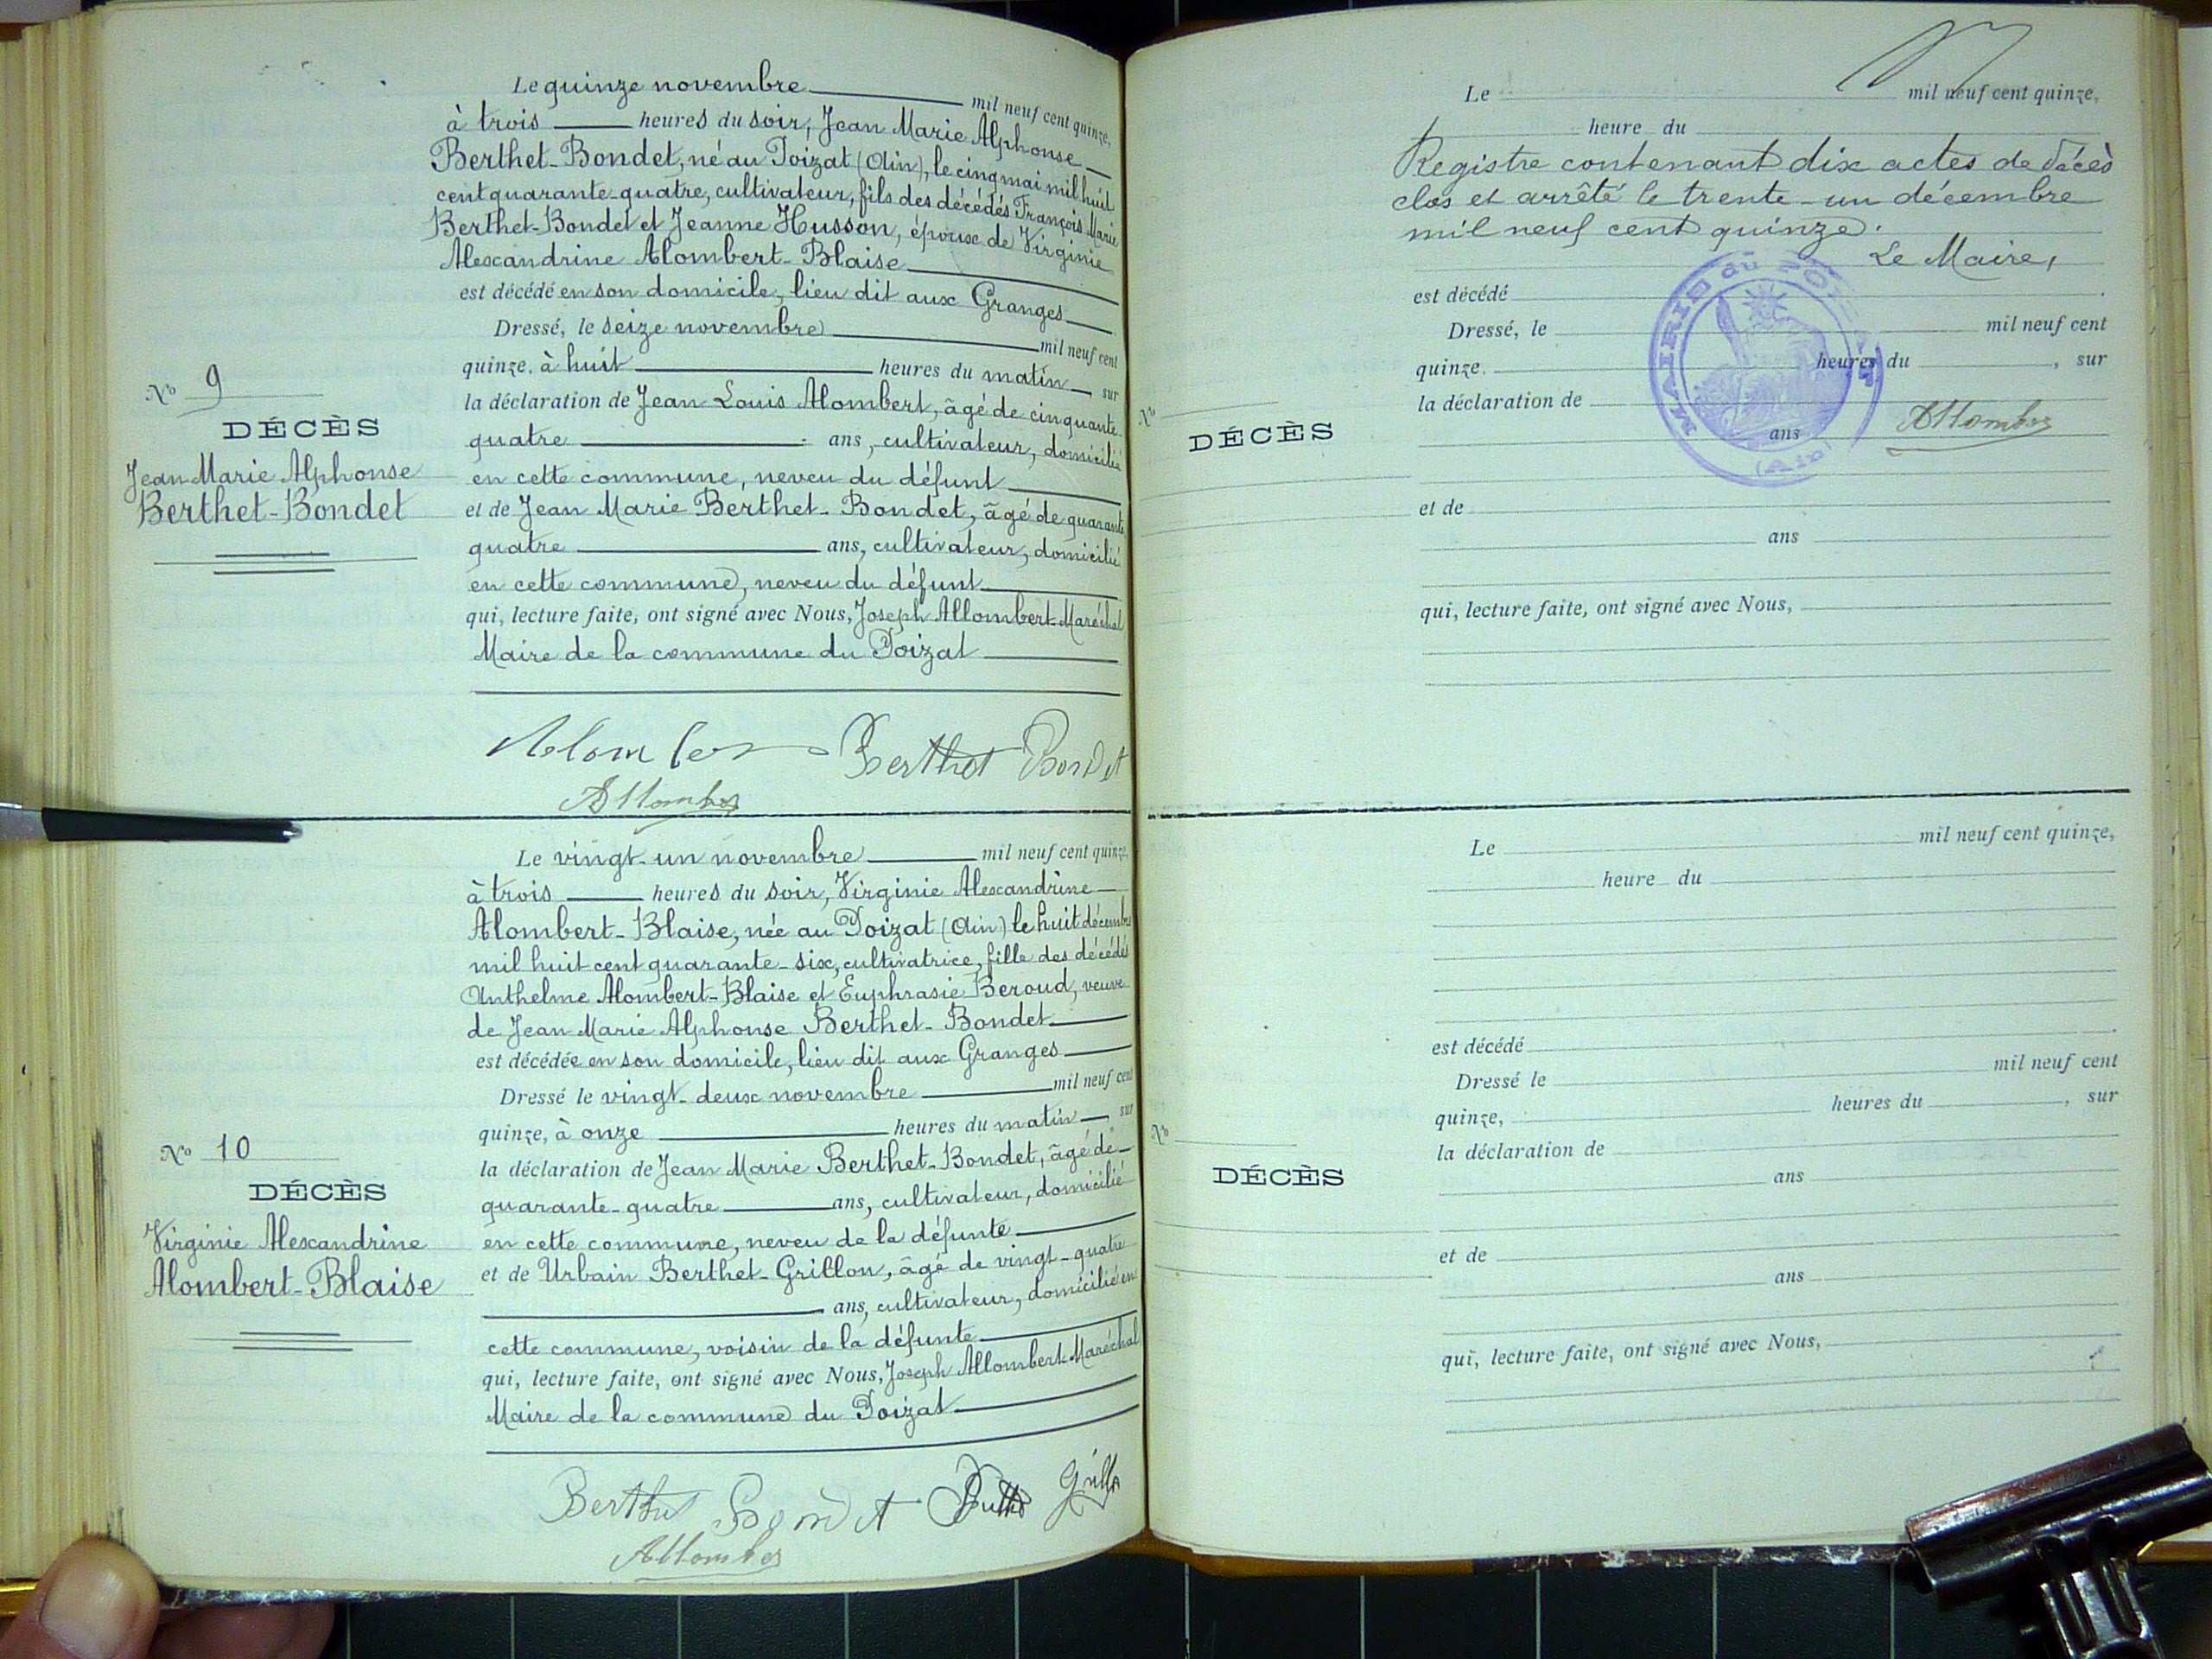 Le quinze novembre mil neuf cent quinze,
à trois heures du soir, Jean Marie Alphonse
Berthet-Bondet, né au Poizat (Ain), le cinq mai mil huit
cent quarante-quatre, cultivateur, fils des décédés François Marie
Berthet-Bondet et Jeanne Husson, époux de Virginie
Alexandrine Alombert-Blaise
est décédé en son domicile, lieu dit aux Granges
Dressé, le seize novembre mil neuf cent
quinze, à huit heures du matin sur
la déclaration de Jean Louis Alombert, âgé de cinquante-
quatre ans, cultivateur, domicilié
en cette commune, neveu du défunt
et de Jean Marie Berthet-Bondet, âgé de quarante
quatre ans, cultivateur, domicilié
en cette commune, neveu du défunt
qui, lecture faite, ont signé avec Nous, Joseph Allombert-Maréchal
Maire de la commune du Poizat
No 9
DÉCÈS
Jean Marie Alphonse
Berthet-Bondet
Berthet Bondet
Le vingt-un novembre mil neuf cent quinze,
à trois heures du soir, Virginie Alexandrine
Alombert-Blaise, née au Poizat (Ain) le huit décembre
mil huit cent quarante-six, cultivatrice, fille des décédés
Anthelme Alombert-Blaise et Euphrasie Beroud, veuve
de Jean Marie Alphonse Berthet-Bondet
est décédée en son domicile, lieu dit aux Granges
Dressé le vingt-deux novembre mil neuf cent
quinze, à onze heures du matin, sur
la déclaration de Jean Marie Berthet-Bondet, âgé de
quarante-quatre ans, cultivateur, domicilié
en cette commune, neveu de la défunte
et de Urbain Berthet-Grillon, âgé de vingt-quatre
ans, cultivateur, domicilié en
cette commune, voisin de la défunte
qui, lecture faite, ont signé avec Nous, Joseph Allombert-Maréchal
Maire de la commune du Poizat
No 10
DÉCÈS
Virginie Alexandrine
Alombert-Blaise
Berthet Bondet
Le mil neuf cent quinze,
heure du
Registre contenant dix actes de décès
clos et arrêté le trente-un décembre
mil neuf cent quinze.
Le Maire,
est décédé
Dressé, le mil neuf cent
quinze, heures du , sur
la déclaration de
ans
et de
ans
qui, lecture faite, ont signé avec Nous,
No
DÉCÈS
MAIRIE du
(Ain)
Le mil neuf cent quinze,
heure du
est décédé
Dressé le mil neuf cent
quinze, heures du , sur
la déclaration de
ans
et de
ans
qui, lecture faite, ont signé avec Nous,
No
DÉCÈS